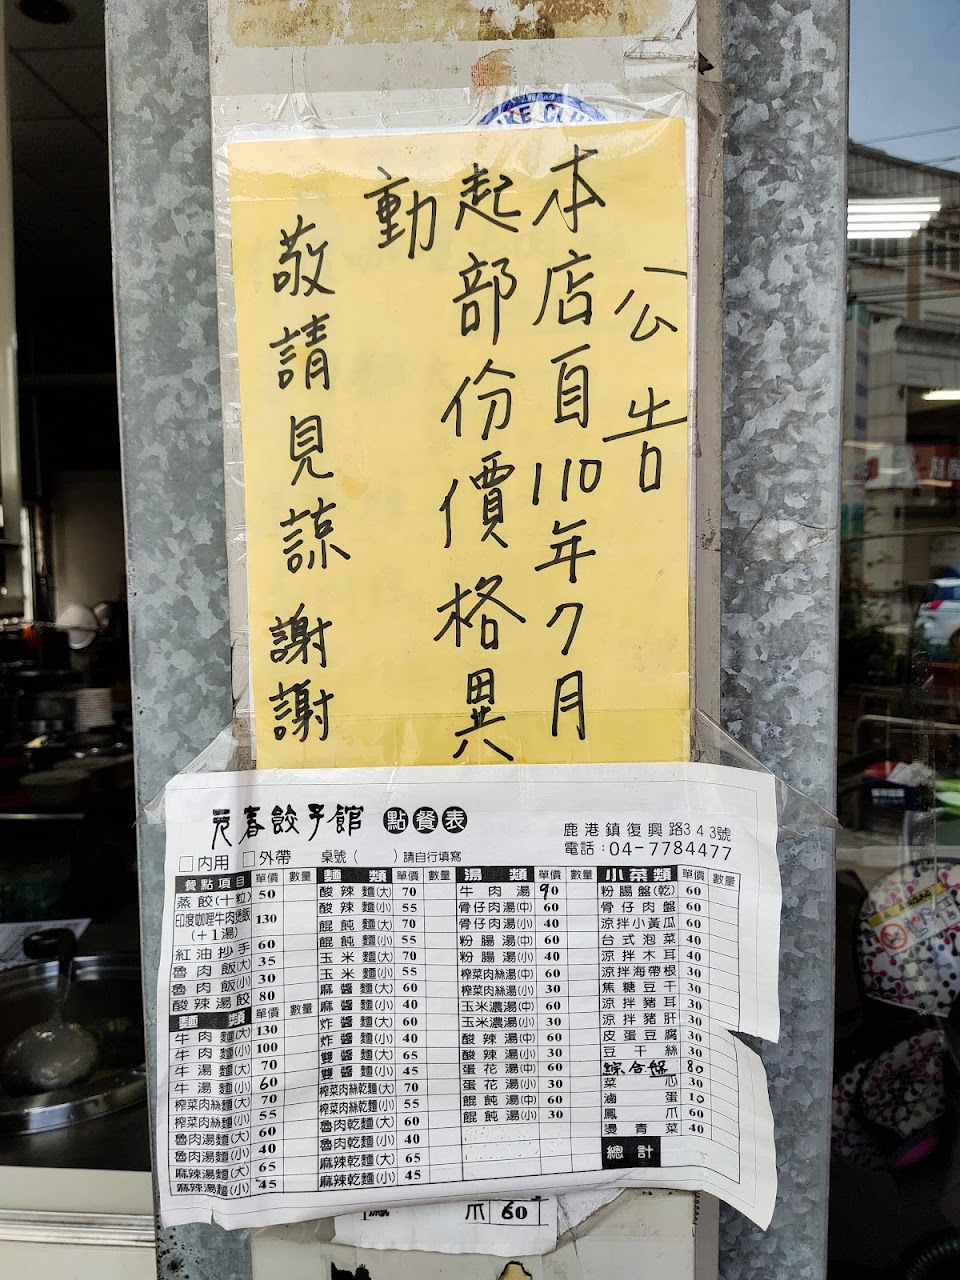 KE CLU
公告
本店自110年7月
起部份價格異
動
敬請見諒 謝謝
元春餃子館 點餐表
鹿港鎮復興路343號
電話：04-7784477
□內用 □外帶 桌號( )請自行填寫
餐點項目 單價 數量
蒸餃(十粒) 50
印度咖哩牛肉燴飯(+1湯) 130
紅油抄手 60
魯肉飯(大) 35
魯肉飯(小) 30
酸辣湯餃 80
麵類 單價 數量
牛肉麵(大) 130
牛肉麵(小) 100
牛湯麵(大) 70
牛湯麵(小) 60
榨菜肉絲麵(大) 70
榨菜肉絲麵(小) 55
魯肉湯麵(大) 60
魯肉湯麵(小) 40
麻辣湯麵(大) 65
麻辣湯麵(小) 45
麵類 單價 數量
酸辣麵(大) 70
酸辣麵(小) 55
餛飩麵(大) 70
餛飩麵(小) 55
玉米麵(大) 70
玉米麵(小) 55
麻醬麵(大) 60
麻醬麵(小) 40
炸醬麵(大) 60
炸醬麵(小) 40
雙醬麵(大) 65
雙醬麵(小) 45
榨菜肉絲乾麵(大) 70
榨菜肉絲乾麵(小) 55
魯肉乾麵(大) 60
魯肉乾麵(小) 40
麻辣乾麵(大) 65
麻辣乾麵(小) 45
湯類 單價 數量
牛肉湯 90
骨仔肉湯(中) 60
骨仔肉湯(小) 40
粉腸湯(中) 60
粉腸湯(小) 40
榨菜肉絲湯(中) 60
榨菜肉絲湯(小) 30
玉米濃湯(中) 60
玉米濃湯(小) 30
酸辣湯(中) 60
酸辣湯(小) 30
蛋花湯(中) 60
蛋花湯(小) 30
餛飩湯(中) 60
餛飩湯(小) 30
小菜類 單價 數量
粉腸盤(乾) 60
骨仔肉盤 60
涼拌小黃瓜 60
台式泡菜 40
涼拌木耳 40
涼拌海帶根 30
焦糖豆干 30
涼拌豬耳 30
涼拌豬肝 30
皮蛋豆腐 30
豆干絲 30
綜合盤 80
菜心 30
滷蛋 10
鳳爪 60
燙青菜 40
總計
爪 60